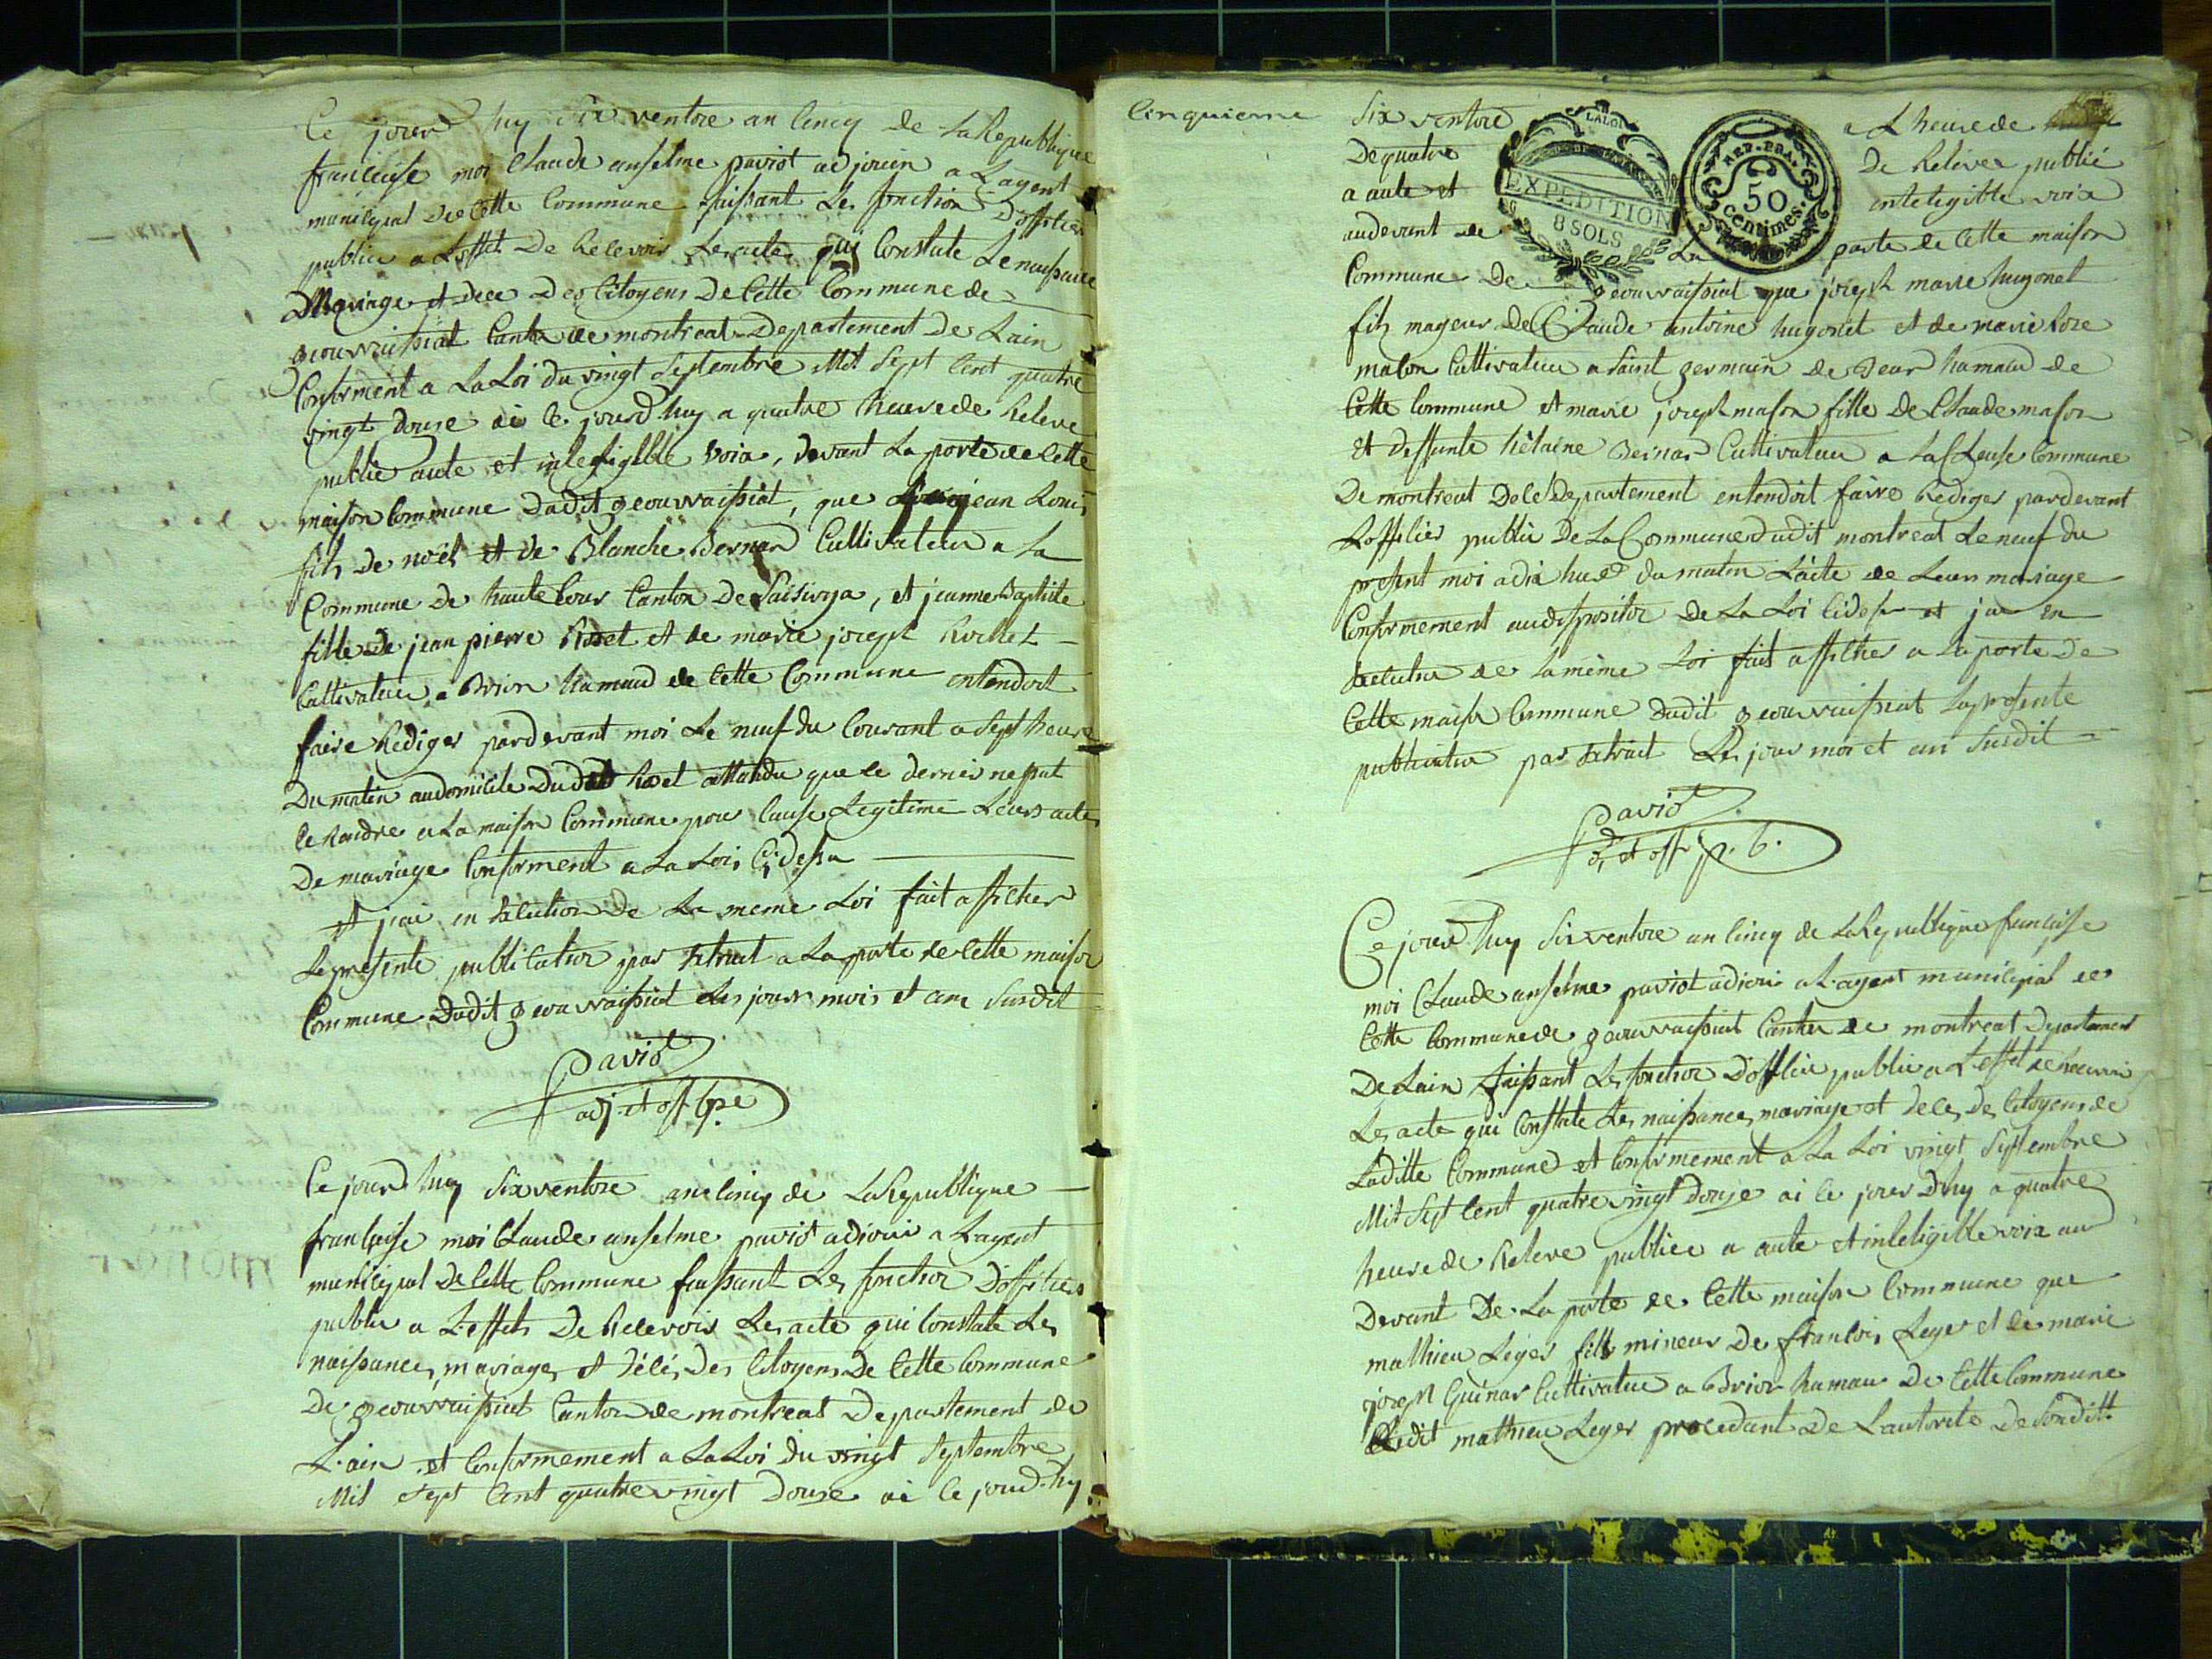 Ce jourd huy six ventose an cincq de la Republique
francaise moi Claude anselme paviot adjoin a Lagent
municipal de cette Commune faissant les fonction D'officier
public a Leffet De Recevoir les actes qui Constate Le naissance
Mariage et dece Des Citoyens De cette Commune de
geouvraissiat Canton de montreal Departement de Lain
Conforment a La Loi du vingt septembre Mil sept Cent quatre
vingt douze ai ce jourd huy a quatre heure de Releve
publie aute et intelegiblle voix, devant La porte de cette
maison Commune dudit geouvraissiat, que jean Louis
fils de noël et de Blanche Bernar Cultivateur a La
Commune de hautecour Canton De , et jeanne Baptiste
fille de jean pierre Rosset et de marie joseph Rochet
Cultivateur a Brion hamaud de cette Commune entendoit
faire Rediger pardevant moi Le neuf du Courant a sept heure
Du matin audomicile Dudit attandu que le dernier ne put
ce Randre a La maison Commune pour Cause Legitime Leurs acte
De mariage Conforment a La Loi Ci dessu
et jai en de La meme Loi fait afficher
La presente publication par extrait a La porte de cette maison
Commune Dudit geouvraissiat Les jour mois et an susdit
Paviot
adj. et off. p.
Ce jourd huy six ventose an cinq de La Republique
francaise moi Claude anselme paviot adjoin a Lagent
municipal De cette Commune faissant Les fonction D'officier
public a L'effet De Recevoir Les acte qui Constate Les
naissances mariages et décés Des Citoyens De cette Commune
De geouvraissiat Canton de montreal Departement de
L'ain et Conformement a La Loi du vingt septembre
Mil sept Cent quatre vingt douze ai ce jourd'hy
Cinquieme six ventose a L heure de
LALOI
EXPEDITION
8 SOLS
REP. FRA.
50
Centimes.
De quatre De Relevee publié
a aute et intelegible voix
audevant de La porte de cette maison
Commune De geouvraissiat que joseph marie hugonet
fils mageur de Claude antoine hugonet et de marie
Cultivateur a saint germain de hamau de
Cette Commune et marie joseph mason fille de Claude mason
et deffunte hélaine Bernar Cultivateur a La Cluse Commune
De montreal De ce departement entendoit faire Rediger pardevant
L'officier public De La Commune dudit montreal Le neuf du
present moi a dix hure du matin L'acte de Leur mariage
Conformement au disposition De La Loi cidessu et jai en
de La même Loi fait afficher a La porte De
Cette maison Commune Dudit geouvraissiat La presente
publication par extrait Les jour moi et an susdit
Paviot
et off. p. b.
Ce jourd huy six ventose an cincq de La Republique francaise
moi Claude anselme paviot adjoin a L'agent municipal de
Cette Commune de geouvraissiat Canton de montreal Departement
De Lain faissant Les fonction D'officier public a L'effet de Recevoir
Les acte qui Constate Les naissances mariage et deces des Citoyens de
Laditte Commune et Conformement a La Loi vingt septembre
Mil sept Cent quatre vingt douze ai ce jour Dhuy a quatre
heure de Releve publiee a aute et inteligible voix au
Devant De La porte de Cette maison Commune que
mathieu Leger fils mineur De francois Leger et de marie
joseph Guinar Cultivateur a Brion hamau De Cette Commune
Ledit mathieu Leger procedant De Lautorite De sondit